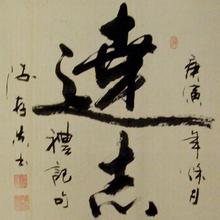 庚寅年秋月
達志
禮記句